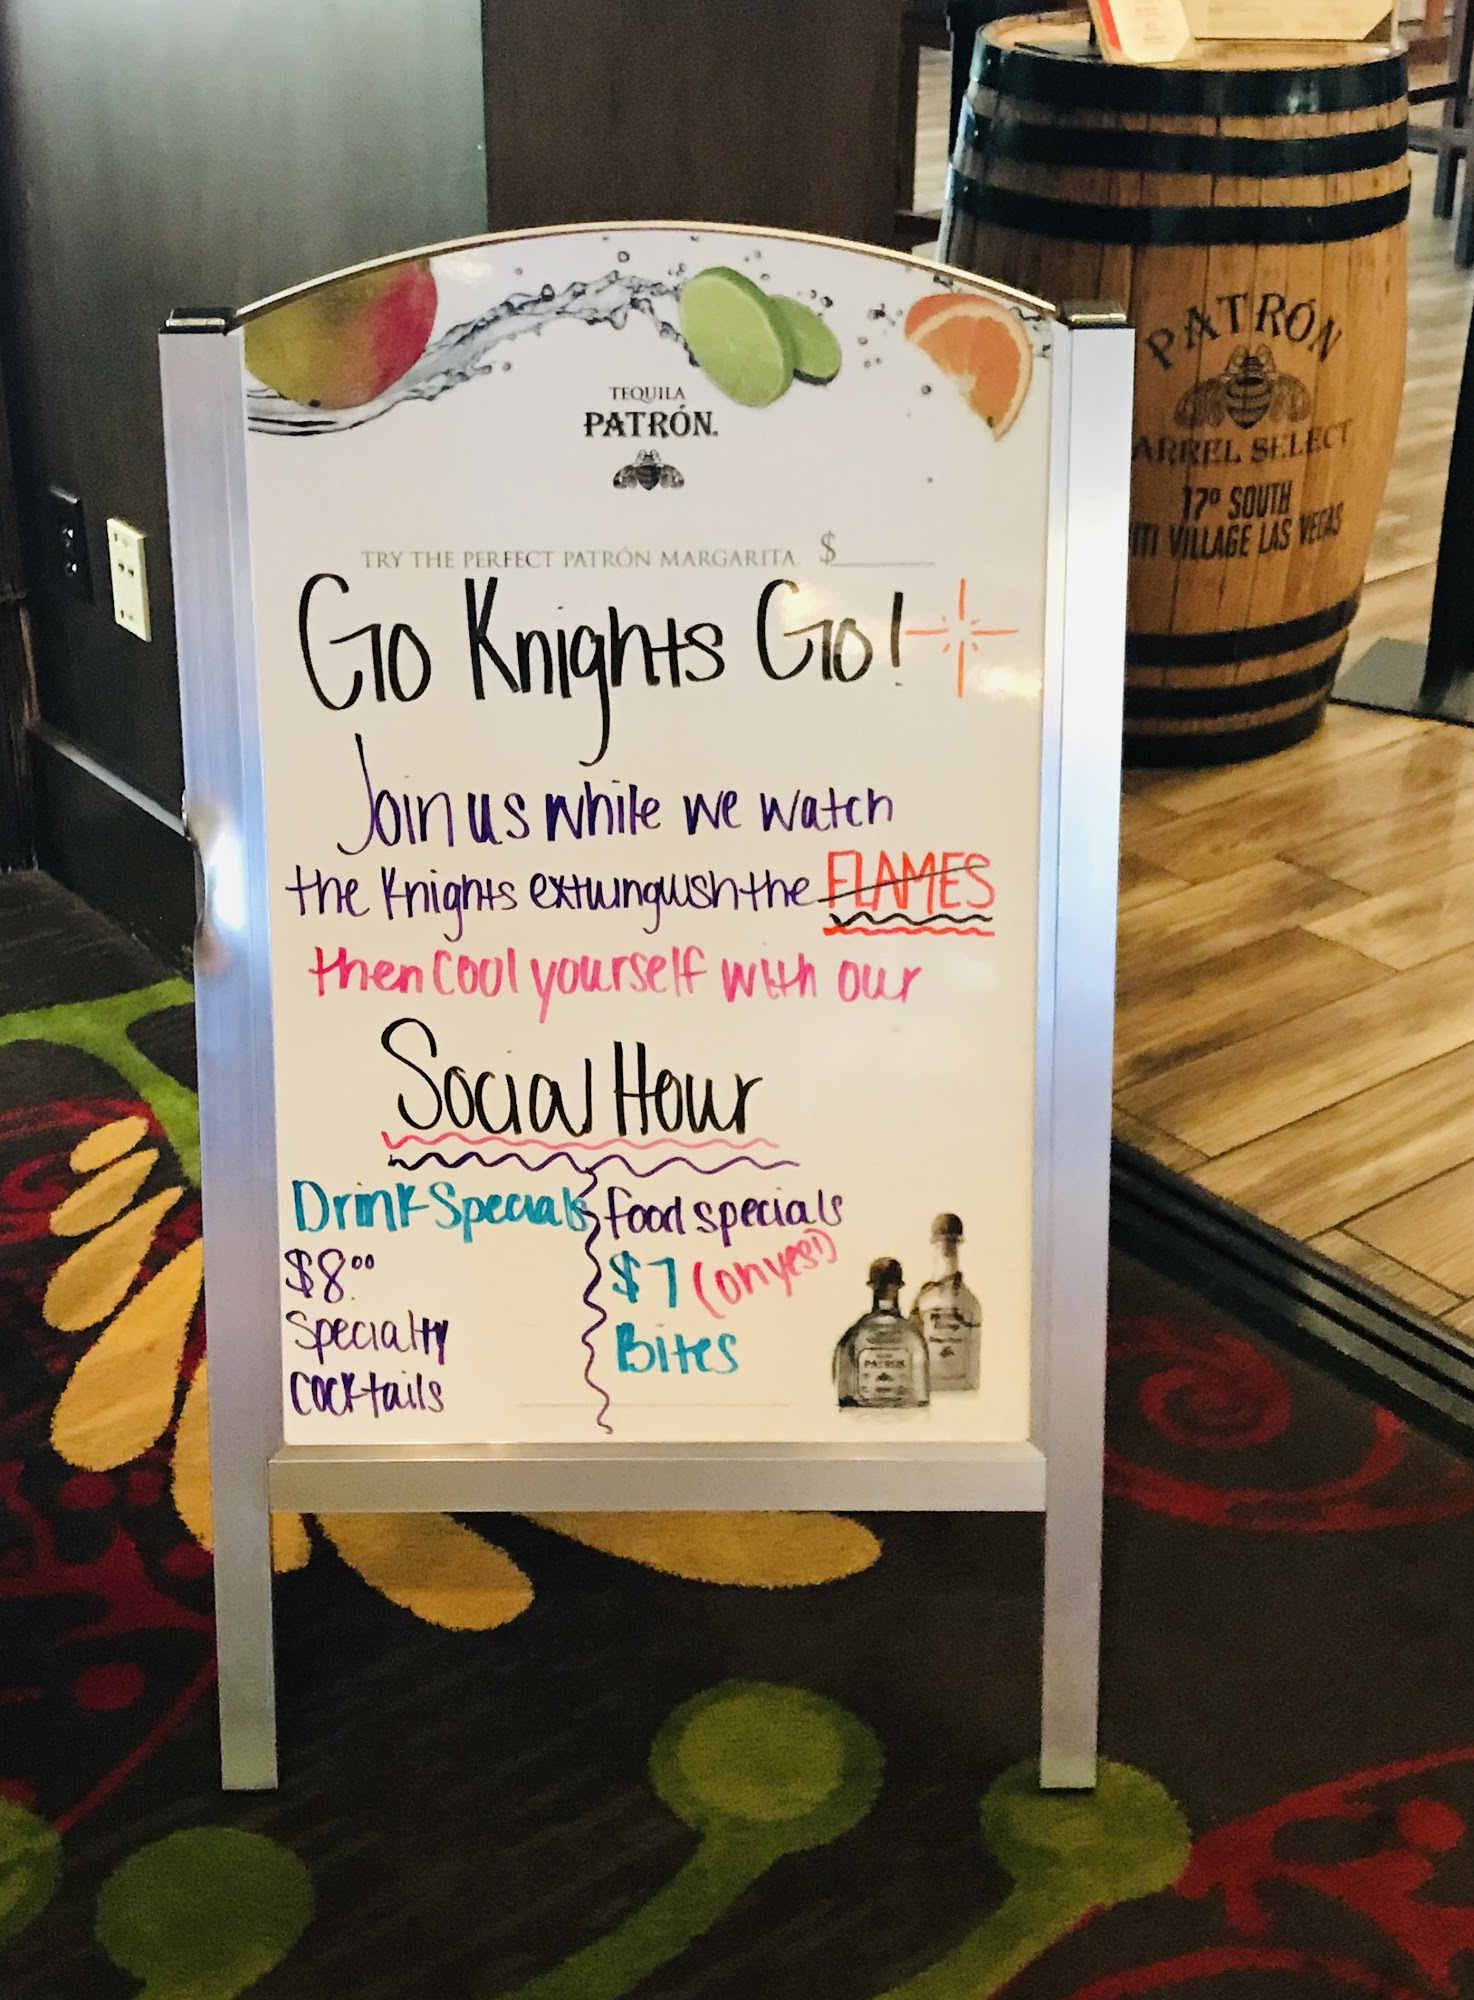 TEQUILA
PATRÓN.
TRY THE PERFECT PATRÓN MARGARITA $
Go Knights Go!
Join us while we watch
the Knights extuinguish the FLAMES
then cool yourself with our
Social Hour
Drink Specials
$8.00
Specialty
Cocktails
food specials
$7 (oh yes!)
Bites
PATRÓN
PATRÓN
ARREL SELECT
17º SOUTH
ITI VILLAGE LAS VEGAS